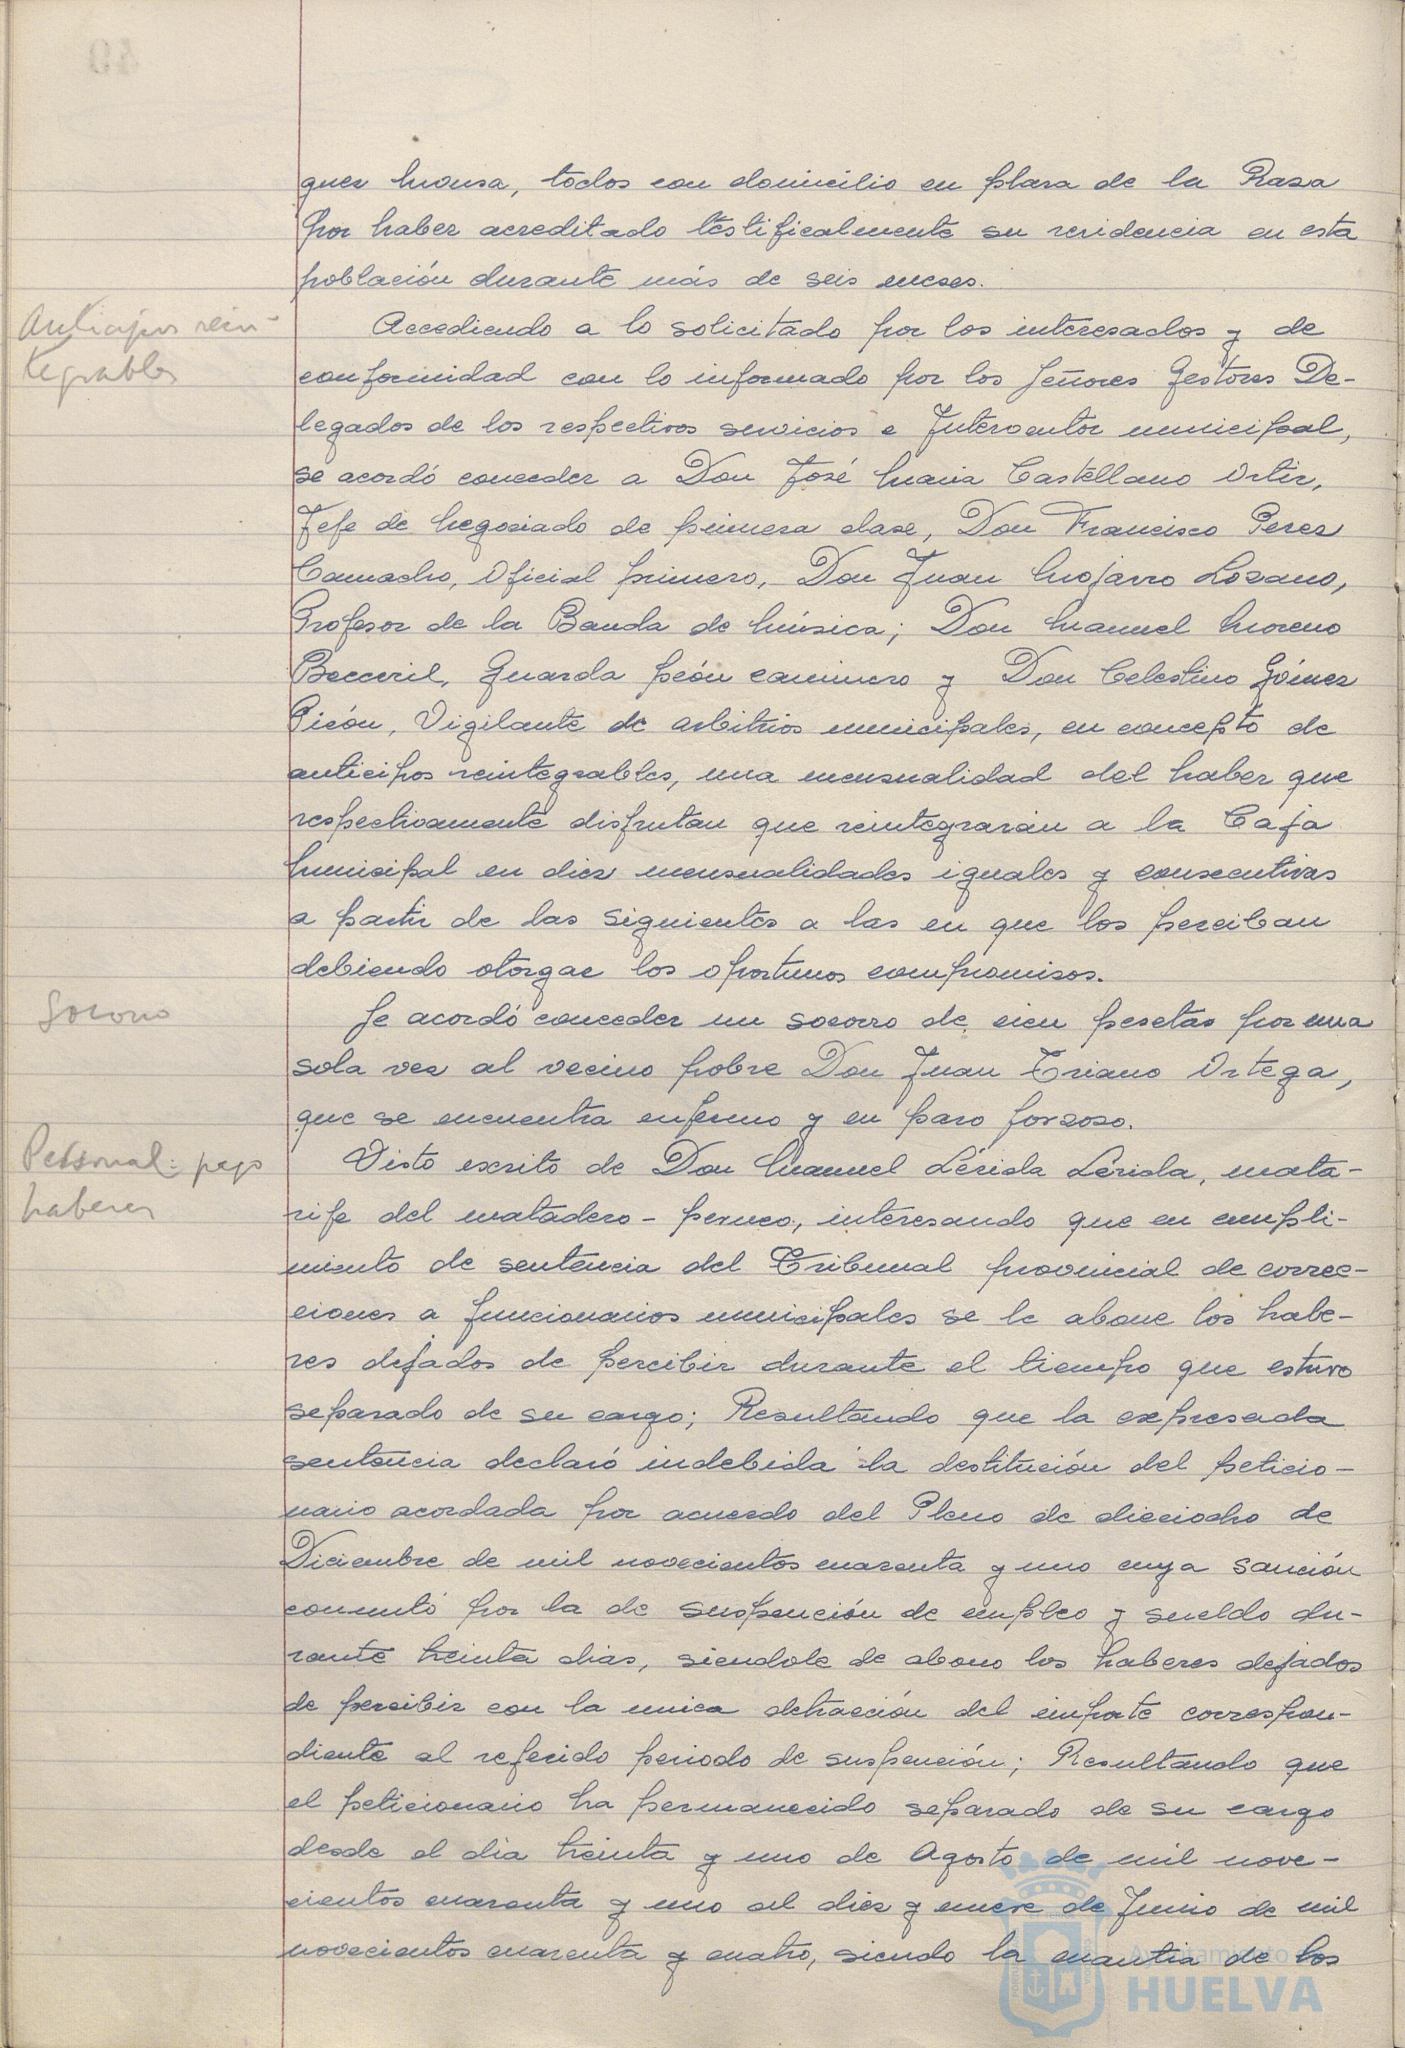 quez Mousa, todos con domicilio en plaza de la Raza
por haber acreditado testificalmente su residencia en esta
población durante más de seis meses.
Anticipos rein-
tegrables
Accediendo a lo solicitado por los interesados y de
conformidad con lo informado por los Señores Gestores De-
legados de los respectivos servicios e Interventor municipal,
se acordó conceder a Don José Maria Castellano Ortiz,
Jefe de Negociado de primera clase, Don Francisco Perez
Camacho, Oficial primero, Don Juan Mojarro Lozano,
Profesor de la Banda de Música; Don Manuel Moreno
Becceril, Guarda peón caminero y Don Celestino Gómez
Picón, Vigilante de arbitrios municipales, en concepto de
anticipos reintegrables, una mensualidad del haber que
respectivamente disfrutan que reintegrarán a la Caja
Municipal en diez mensualidades iguales y consecutivas
a partir de las siguientes a las en que los perciban
debiendo otorgar los oportunos compromisos.
Socorro
Se acordó conceder un socorro de cien pesetas por una
sola vez al vecino pobre Don Juan Triano Ortega,
que se encuentra enfermo y en paro forzoso.
Personal: pago
haberes
Visto escrito de Don Manuel Lérida Lérida, mata-
rife del matadero-perneo, interesando que en cumpli-
miento de sentencia del Tribunal provincial de correc-
ciones a funcionarios municipales se le abone los habe-
res dejados de percibir durante el tiempo que estuvo
separado de su cargo; Resultando que la expresada
sentencia declaró indebida la destitución del peticio-
nario acordada por acuerdo del Pleno de dieciocho de
Diciembre de mil novecientos cuarenta y uno cuya sanción
conmutó por la de suspención de empleo y sueldo du-
rante treinta dias, siendole de abono los haberes dejados
de percibir con la unica detracción del importe correspon-
diente al referido periodo de suspención; Resultando que
el peticionario ha permanecido separado de su cargo
desde el dia treinta y uno de Agosto de mil nove-
cientos cuarenta y uno al diez y nueve de Junio de mil
novecientos cuarenta y cuatro, siendo la cuantia de los
Ayuntamiento de
HUELVA